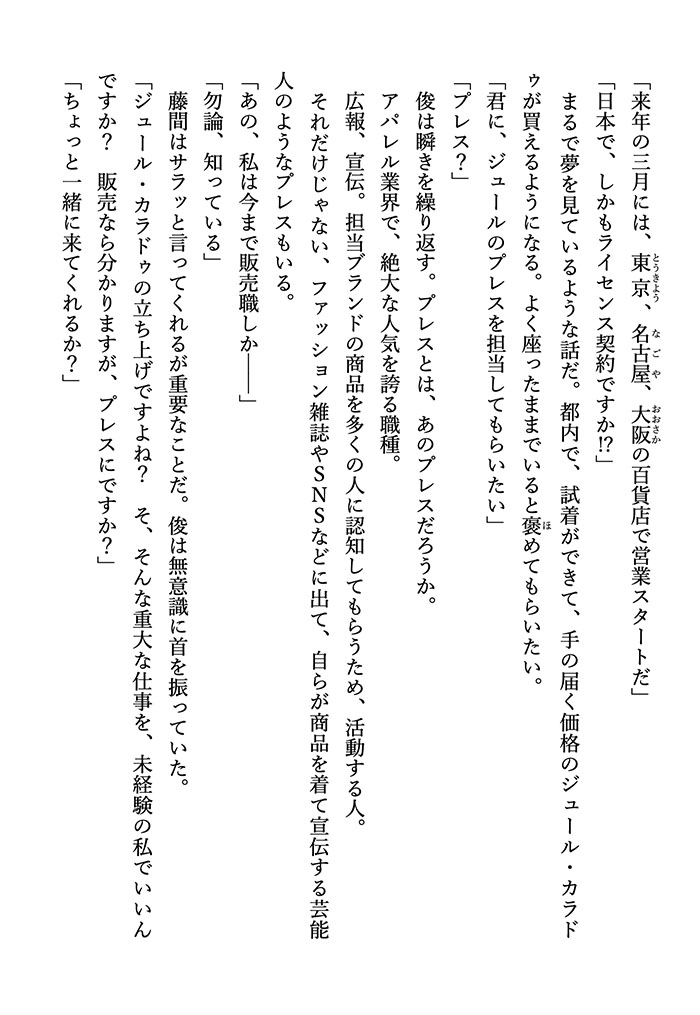 「来年の三月には、東京、名古屋、大阪の百貨店で営業スタートだ」
「日本で、しかもライセンス契約ですか⁉」
　まるで夢を見ているような話だ。都内で、試着ができて、手の届く価格のジュール・カラド
ゥが買えるようになる。よく座ったままでいると褒めてもらいたい。
「君に、ジュールのプレスを担当してもらいたい」
「プレス？」
　俊は瞬きを繰り返す。プレスとは、あのプレスだろうか。
　アパレル業界で、絶大な人気を誇る職種。
　広報、宣伝。担当ブランドの商品を多くの人に認知してもらうため、活動する人。
　それだけじゃない、ファッション雑誌やＳＮＳなどに出て、自らが商品を着て宣伝する芸能
人のようなプレスもいる。
「あの、私は今まで販売職しか――」
「勿論、知っている」
　藤間はサラッと言ってくれるが重要なことだ。俊は無意識に首を振っていた。
「ジュール・カラドゥの立ち上げですよね？　そ、そんな重大な仕事を、未経験の私でいいん
ですか？　販売なら分かりますが、プレスにですか？」
「ちょっと一緒に来てくれるか？」
とうきよう
なごや
おおさか
ほ